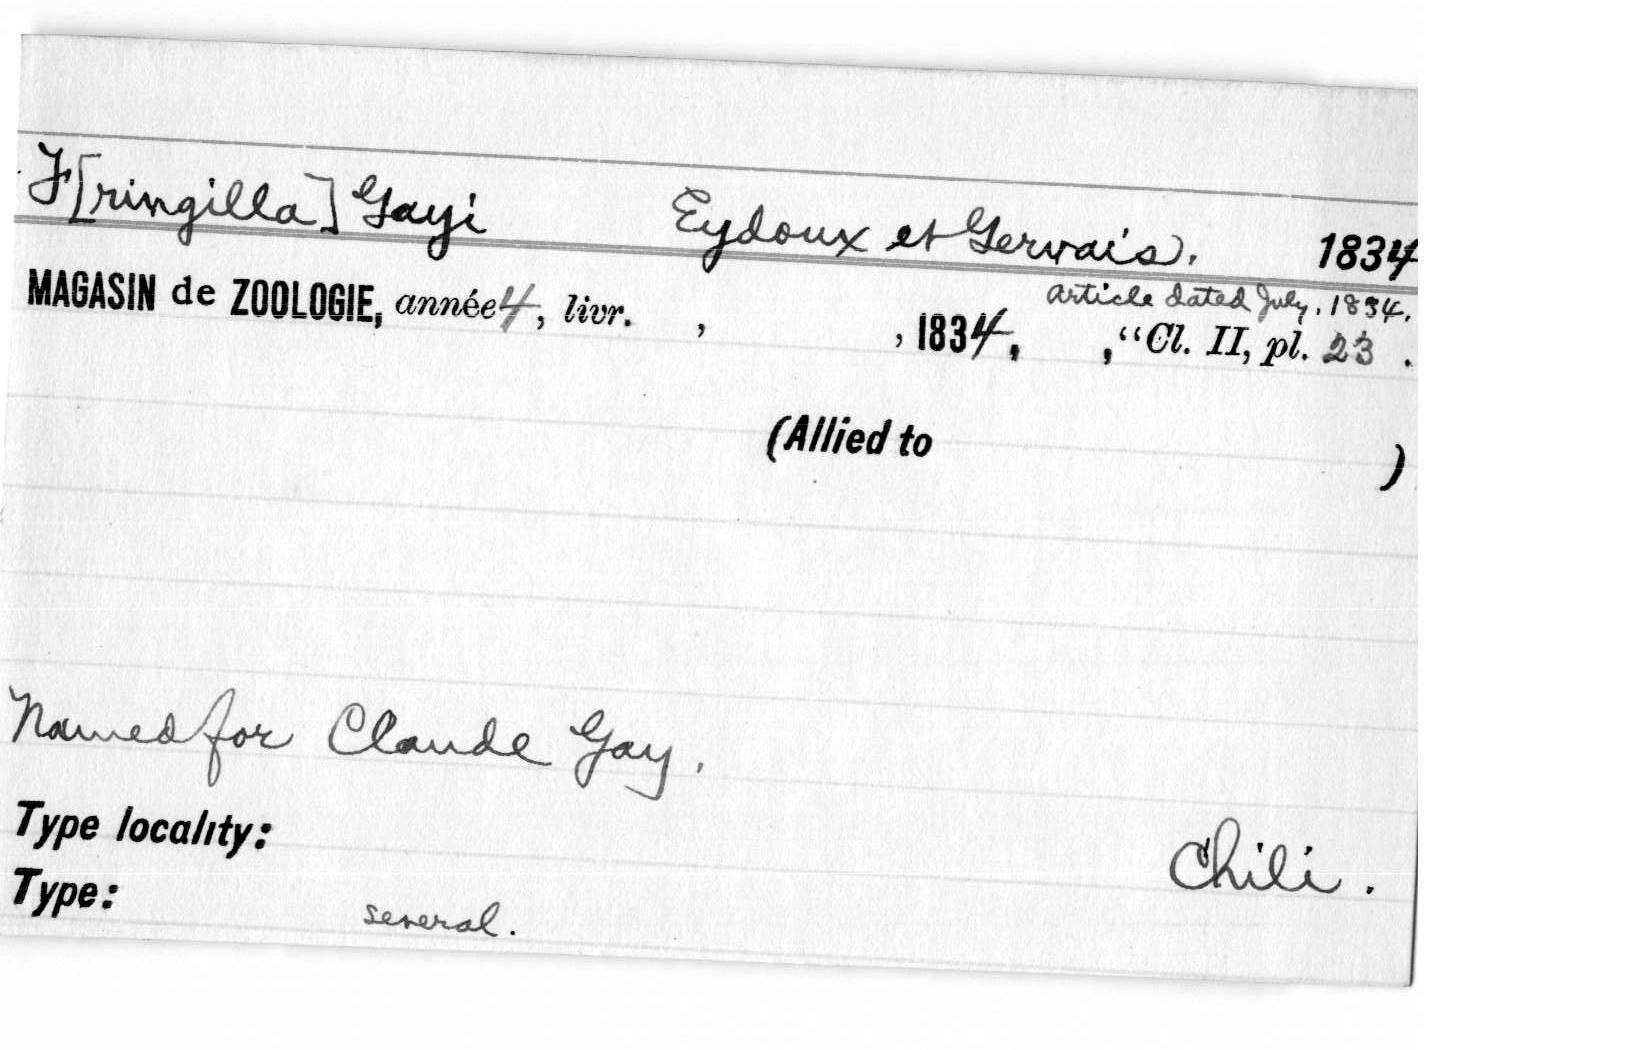 F[ringilla] Gayi Eydoux et Gervais. 1834
article dated July, 1834.
MAGASIN de ZOOLOGIE, année 4, livr. , , 1834, , "Cl. II, pl. 23 .
(Allied to )
Named for Claude Gay.
Type locality: Chili.
Type: several.